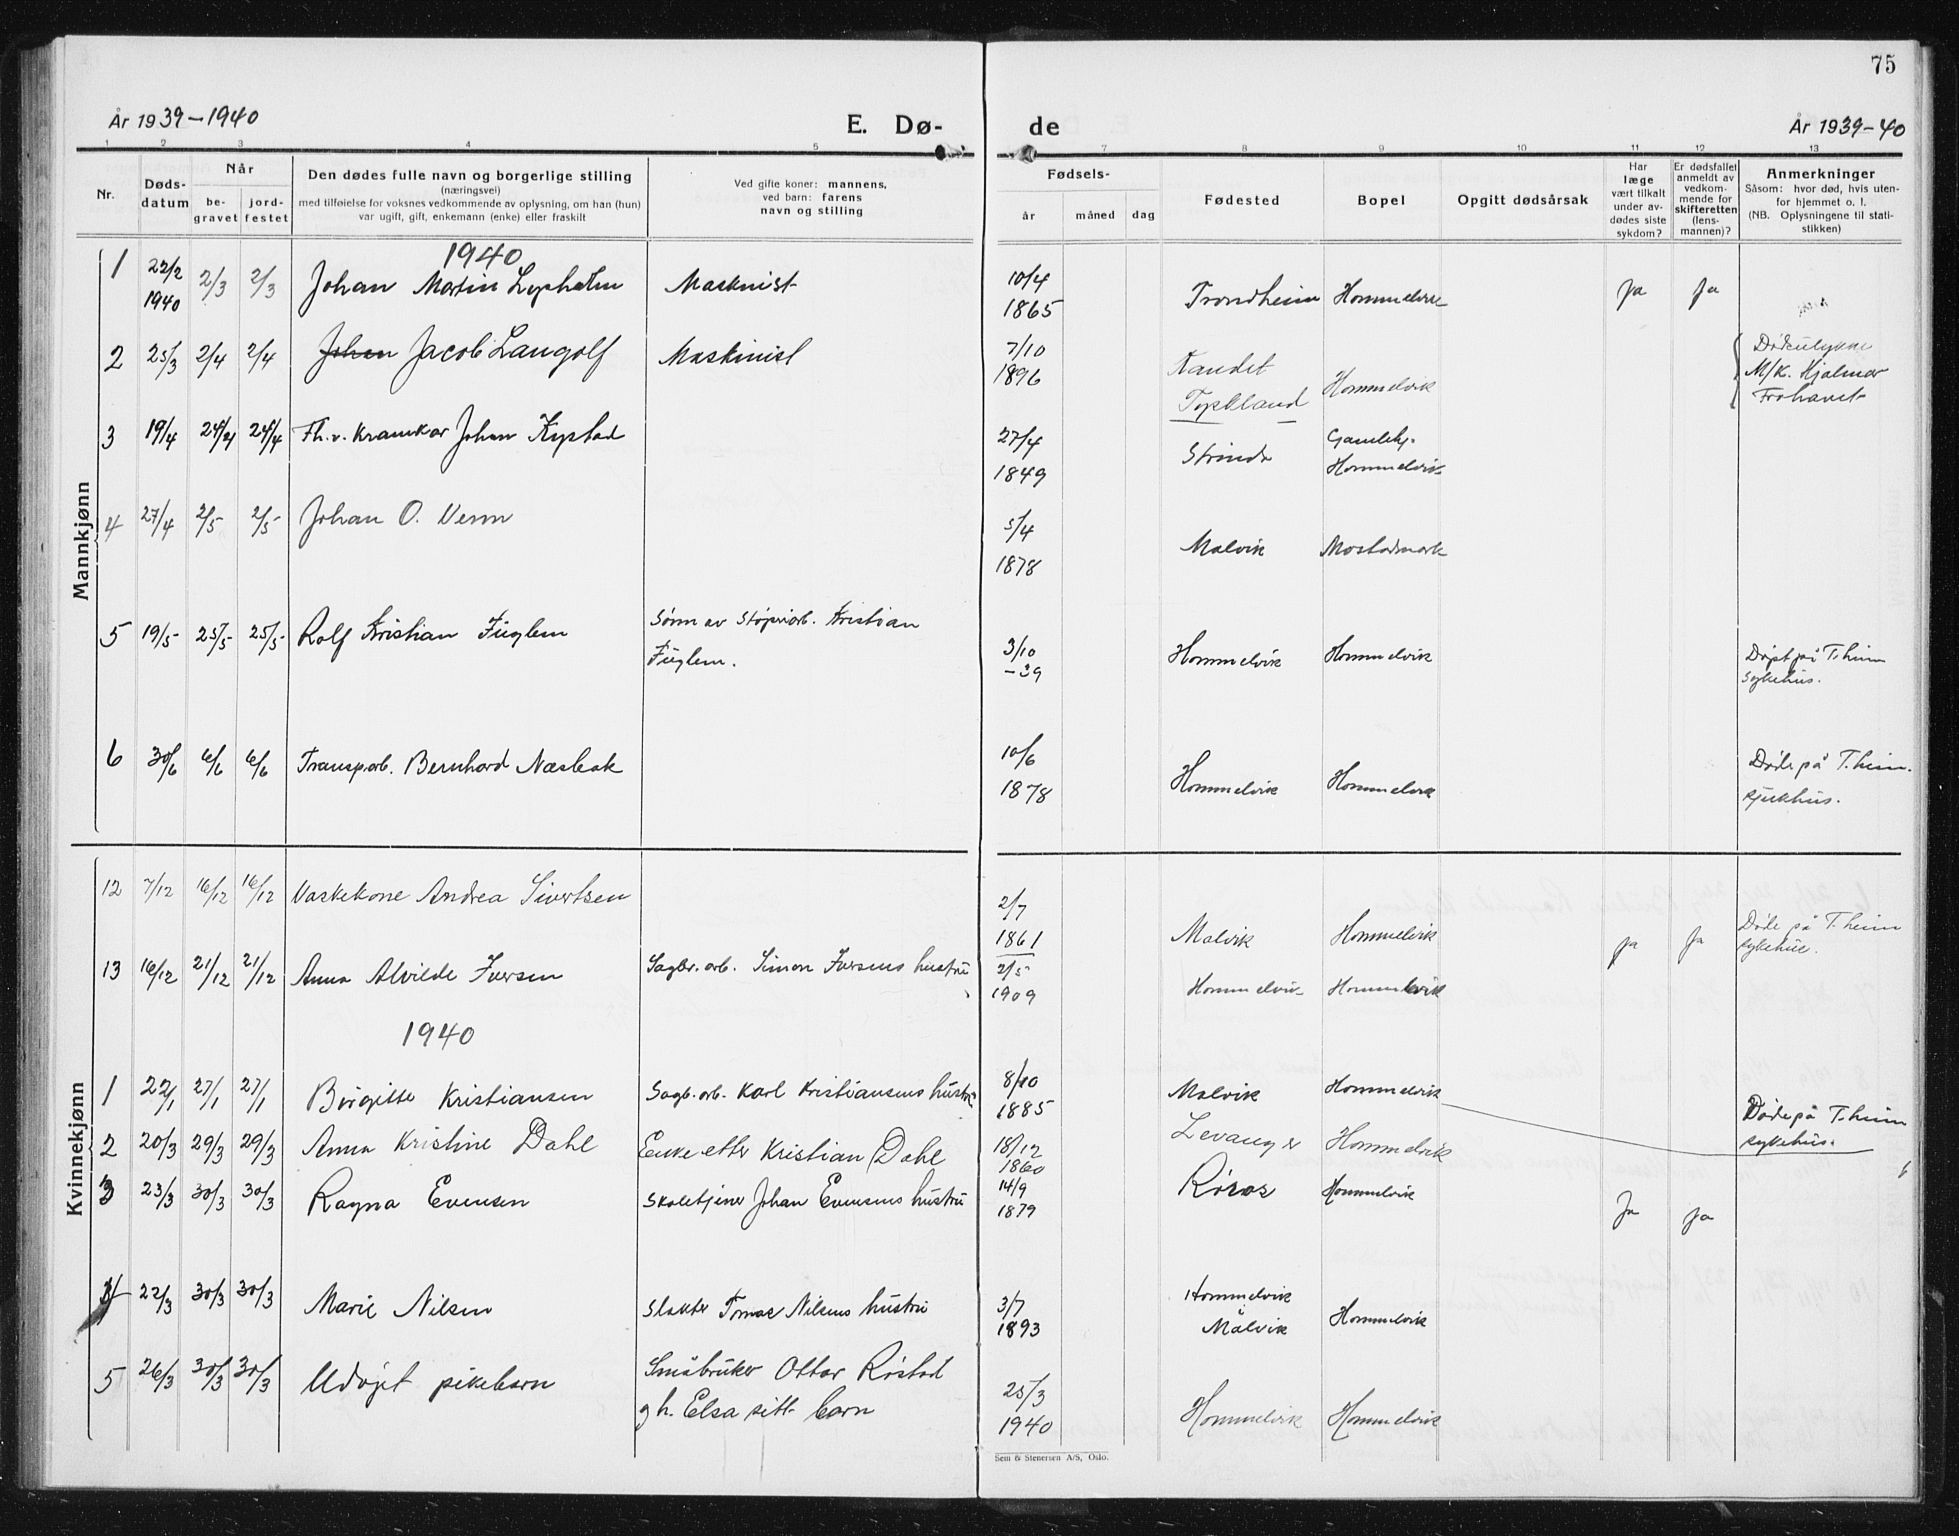 75
År 1939-1940
E. Dø-
de
År 1939-40
1 2 3 4 5 7 8 9 10 11 12 13
Nr.
Døds-
datum
Når
be-
gravet
jord-
festet
Den dødes fulle navn og borgerlige stilling
(næringsvei)
med tilføielse for voksnes vedkommende av oplysning, om han (hun)
var ugift, gift, enkemann (enke) eller fraskilt
Ved gifte koner: mannens,
ved barn: farens
navn og stilling
Fødsels-
år måned dag
Fødested
Bopel
Opgitt dødsårsak
Har
læge
vært tilkalt
under av-
dødes siste
sykdom?
Er dødsfallet
anmeldt av
vedkom-
mende for
skifteretten
(lens-
mannen)?
Anmerkninger
Såsom: hvor død, hvis uten-
for hjemmet o. l.
(NB. Oplysningene til stati-
stikken)
Mannkjønn
1940
1 22/2 1940 2/3 2/3 Johan Martin Maskinist 10/4 1865 Trondheim Hommelvik Ja Ja
2 25/3 2/4 2/4 Johan Jacob Langolf Maskinist 7/10 1896 Tyskland Hommelvik
M/k. Hjalmar
Frohavet
3 19/4 24/4 24/4 Fh.v. Johan Kystad 27/4 1849 Strinda Gamlehj. Hommelvik
4 27/4 2/5 2/5 Johan O. Venn 5/4 1878 Malvik Mostadmark
5 19/5 25/5 25/5 Rolf Kristian Fuglem Sønn av Støperiarb. Kristian
Fuglem. 3/10 -39 Hommelvik Hommelvik på T.heim
sykehus.
6 30/6 6/6 6/6 Transp.arb. Bernhard Næsbak 10/6 1878 Hommelvik Hommelvik Døde på T.heim.
sjukhus.
Kvinnekjønn
12 7/12 16/12 16/12 Vaskekone Andrea Sivertsen 2/7 1861 Malvik Hommelvik ja ja Døde på T.heim
sykehus.
13 16/12 21/12 21/12 Anna Alvilde Iversen Sagbr.arb. Simon Iversens hustru 2/5 1909 Hommelvik Hommelvik
1940
1 22/1 27/1 27/1 Birgitte Kristiansen Sagb.arb. Karl Kristiansens hustru 8/10 1885 Malvik Hommelvik Døde på T.heim
sykehus.
2 20/3 29/3 29/3 Anna Kristine Dahl Enke etter Kristian Dahl 18/12 1860 Levanger Hommelvik
3 23/3 30/3 30/3 Ragna Evensen Skoletjener Johan Evensens hustru 14/9 1879 Røros Hommelvik Ja ja
4 22/3 30/3 30/3 Marie Nilsen Slakter Tomas Nilsens hustru 3/7 1893 Hommelvik
Malvik Hommelvik
5 26/3 30/3 30/3 Udøpt pikebarn Småbruker Ottar Røstad
g h. Elsa sitt barn 25/3 1940 Hommelvik Hommelvik
Sem & Stenersen A/S, Oslo.